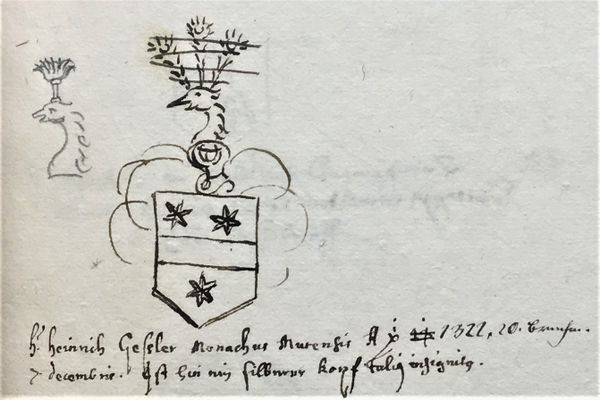 h. heinrich Gessler Monachus Murensis A x 1322, 20.
7 decembris. Ist hin ein silberner kopf talis insignis.